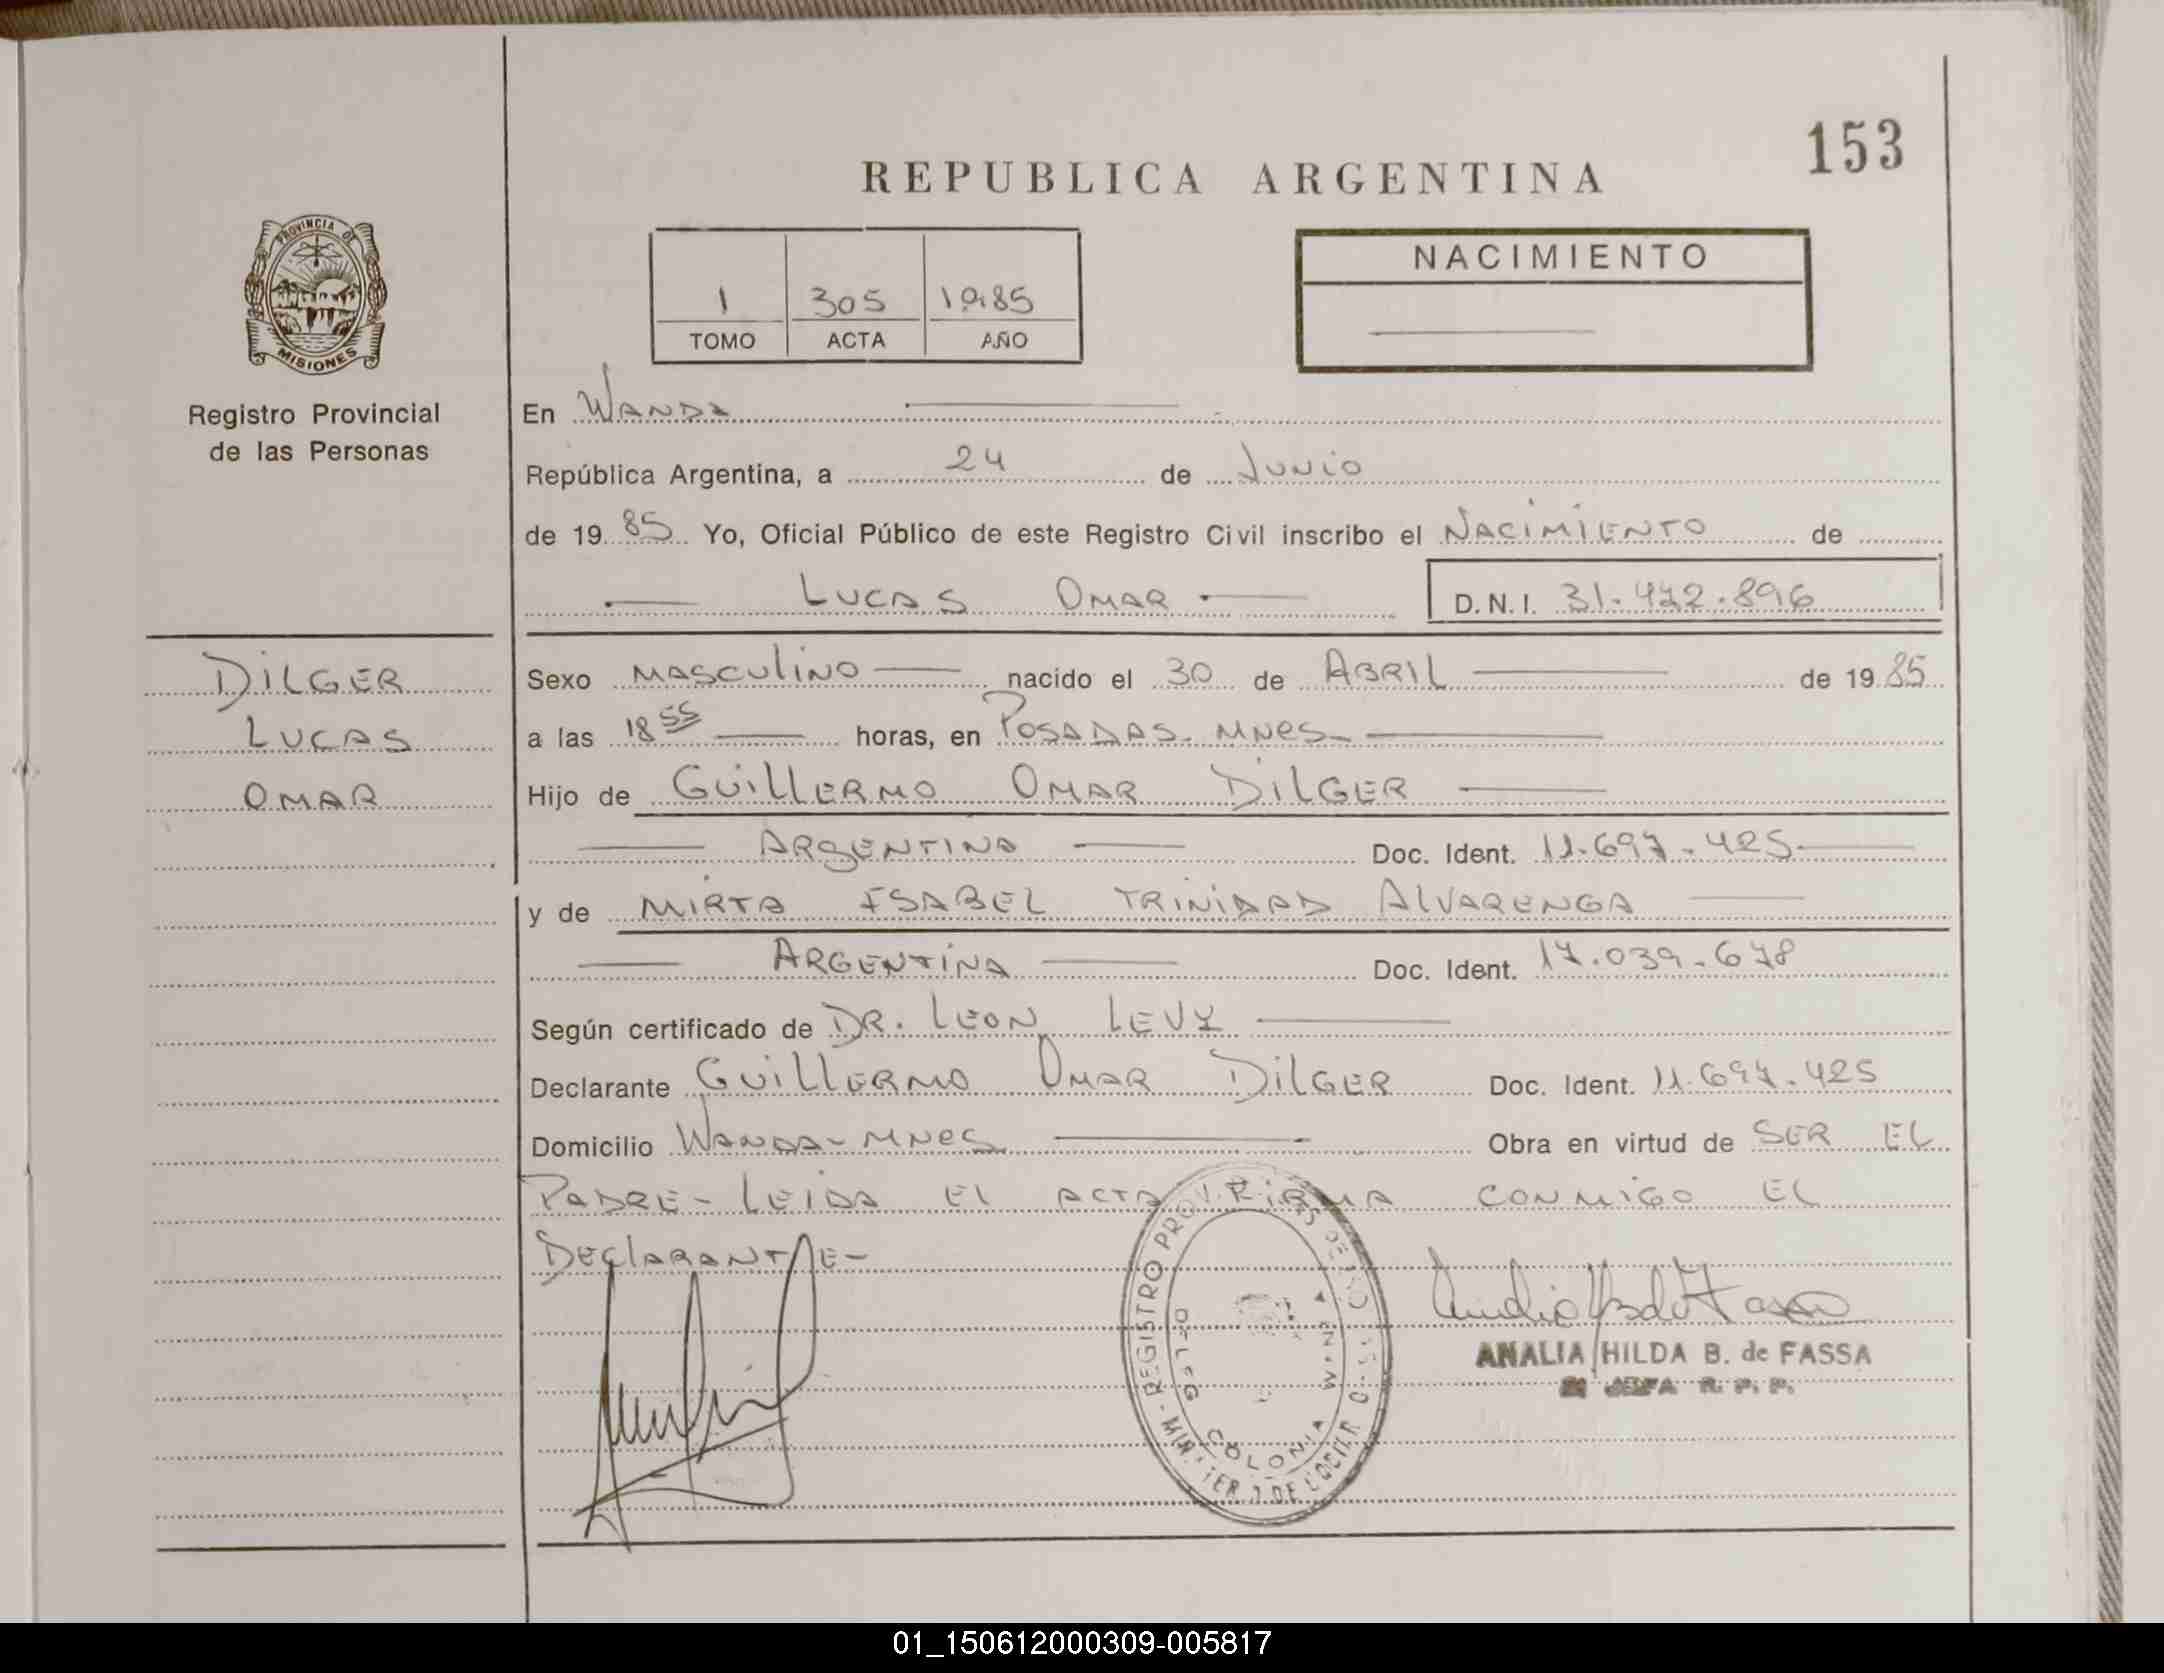 153
REPUBLICA ARGENTINA
PROVINCIA DE
MISIONES
Registro Provincial
de las Personas
1 305 1985
TOMO ACTA AÑO
NACIMIENTO
En WANDA
República Argentina, a 24 de JUNIO
de 1985 Yo, Oficial Público de este Registro Civil inscribo el NACIMIENTO de
LUCAS OMAR D.N.I. 31.472.896
DILGER
LUCAS
OMAR
Sexo MASCULINO nacido el 30 de ABRIL de 1985
a las 18 55 horas, en POSADAS - MNES -
Hijo de GUILLERMO OMAR DILGER
ARGENTINA Doc. Ident. 11.697.425
y de MIRTA ISABEL TRINIDAD ALVARENGA
ARGENTINA Doc. Ident. 17.039.678
Según certificado de DR. LEON LEVY
Declarante GUILLERMO OMAR DILGER Doc. Ident. 11.697.425
Domicilio WANDA - MNES Obra en virtud de SER EL
PADRE - LEIDA EL ACTA FIRMA CONMIGO EL
DECLARANTE -
REGISTRO
DELEG COLONIA WANDA
ANALIA HILDA B. de FASSA
JEFA R. P. P.
01_150612000309-005817